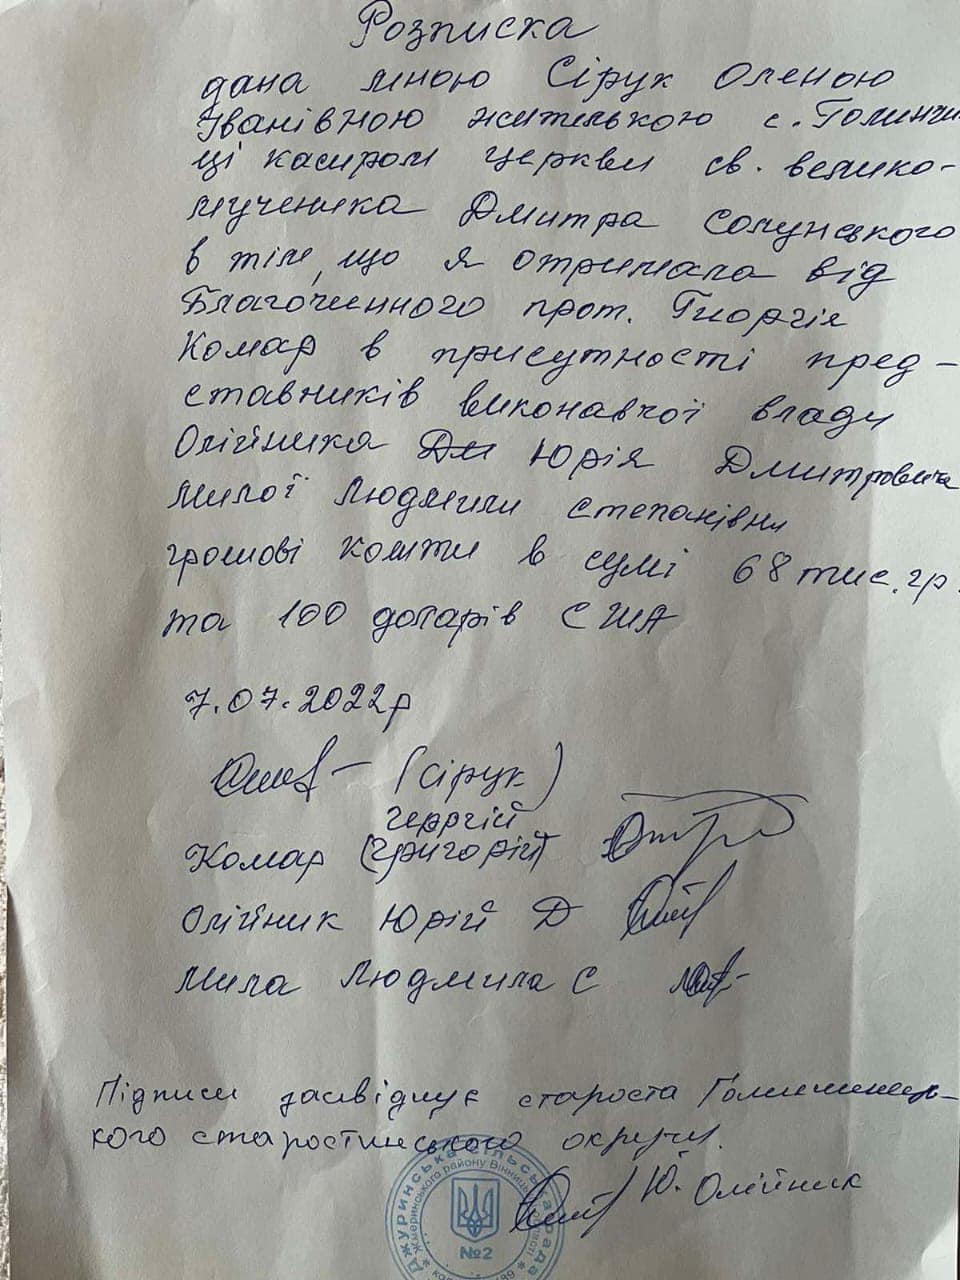 Розписка
дана мною Сірук Оленою
Іванівною жителькою с. Голинчи
ці касиром церкви св. велико-
мученика Дмитра Солунського
в тім, що я отримала від
Благочинного прот. Георгія
Комар в присутності пред-
ставників виконавчої влади
Олійника Дм Юрія Дмитровича
Милої Людмили Степанівни
грошові кошти в сумі 68 тис. гр.
та 100 доларів США
7.07.2022р
(Сірук)
Георгій
Комар (Григорій)
Олійник Юрій Д
Мила Людмила С
Підписи засвідчує староста Голинчинець-
кого старостинського округу.
Ю. Олійник
Джуринська сільська рада
Жмеринського району Вінницької області
№2